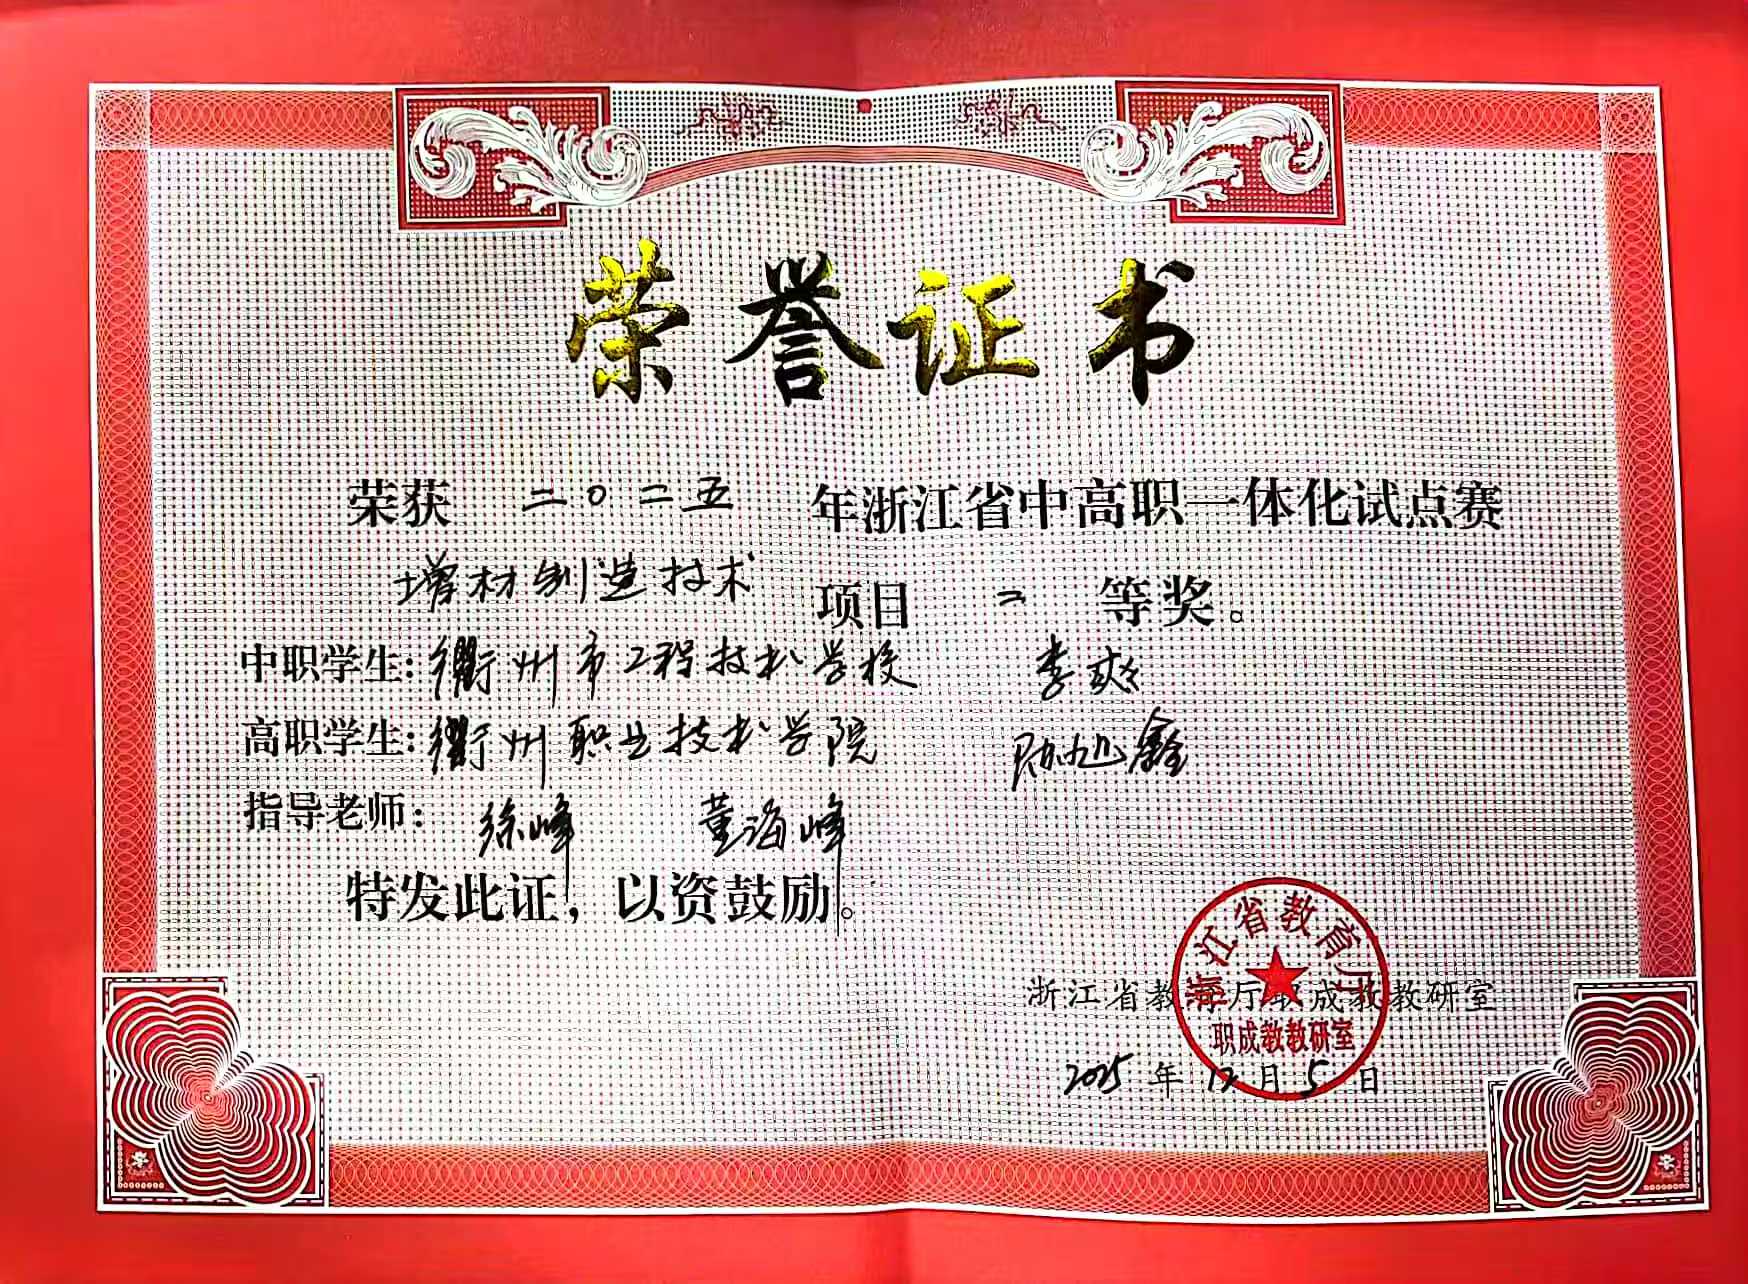 荣誉证书
荣获 二〇二五 年浙江省中高职一体化试点赛
增材制造技术 项目 二 等奖。
中职学生：衢州市工程技术学校 李爽
高职学生：衢州职业技术学院 旭鑫
指导老师： 徐峰 董海峰
特发此证，以资鼓励。
浙江省教育厅
浙江省教育厅职成教教研室
职成教教研室
2025 年 12 月 5 日